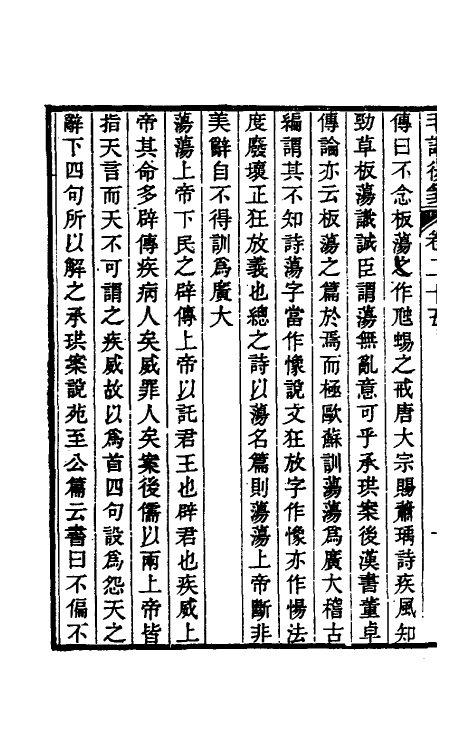 毛詩後箋 卷二十五
傳曰不念板蕩之作虺蜴之戒唐大宗賜蕭瑀詩疾風知
勁草板蕩識誠臣謂蕩無亂意可乎承珙案後漢書董卓
傳論亦云板蕩之篇於焉而極歐蘇訓蕩蕩爲廣大稽古
編謂其不知詩蕩字當作㒩說文狂放字作㒩亦作愓法
度廢壞正狂放義也總之詩以蕩名篇則蕩蕩上帝斷非
美辭自不得訓爲廣大
蕩蕩上帝下民之辟傳上帝以託君王也辟君也疾威上
帝其命多辟傳疾病人矣威罪人矣案後儒以兩上帝皆
指天言而天不可謂之疾威故以爲首四句設爲怨天之
辭下四句所以解之承珙案說苑至公篇云書曰不偏不